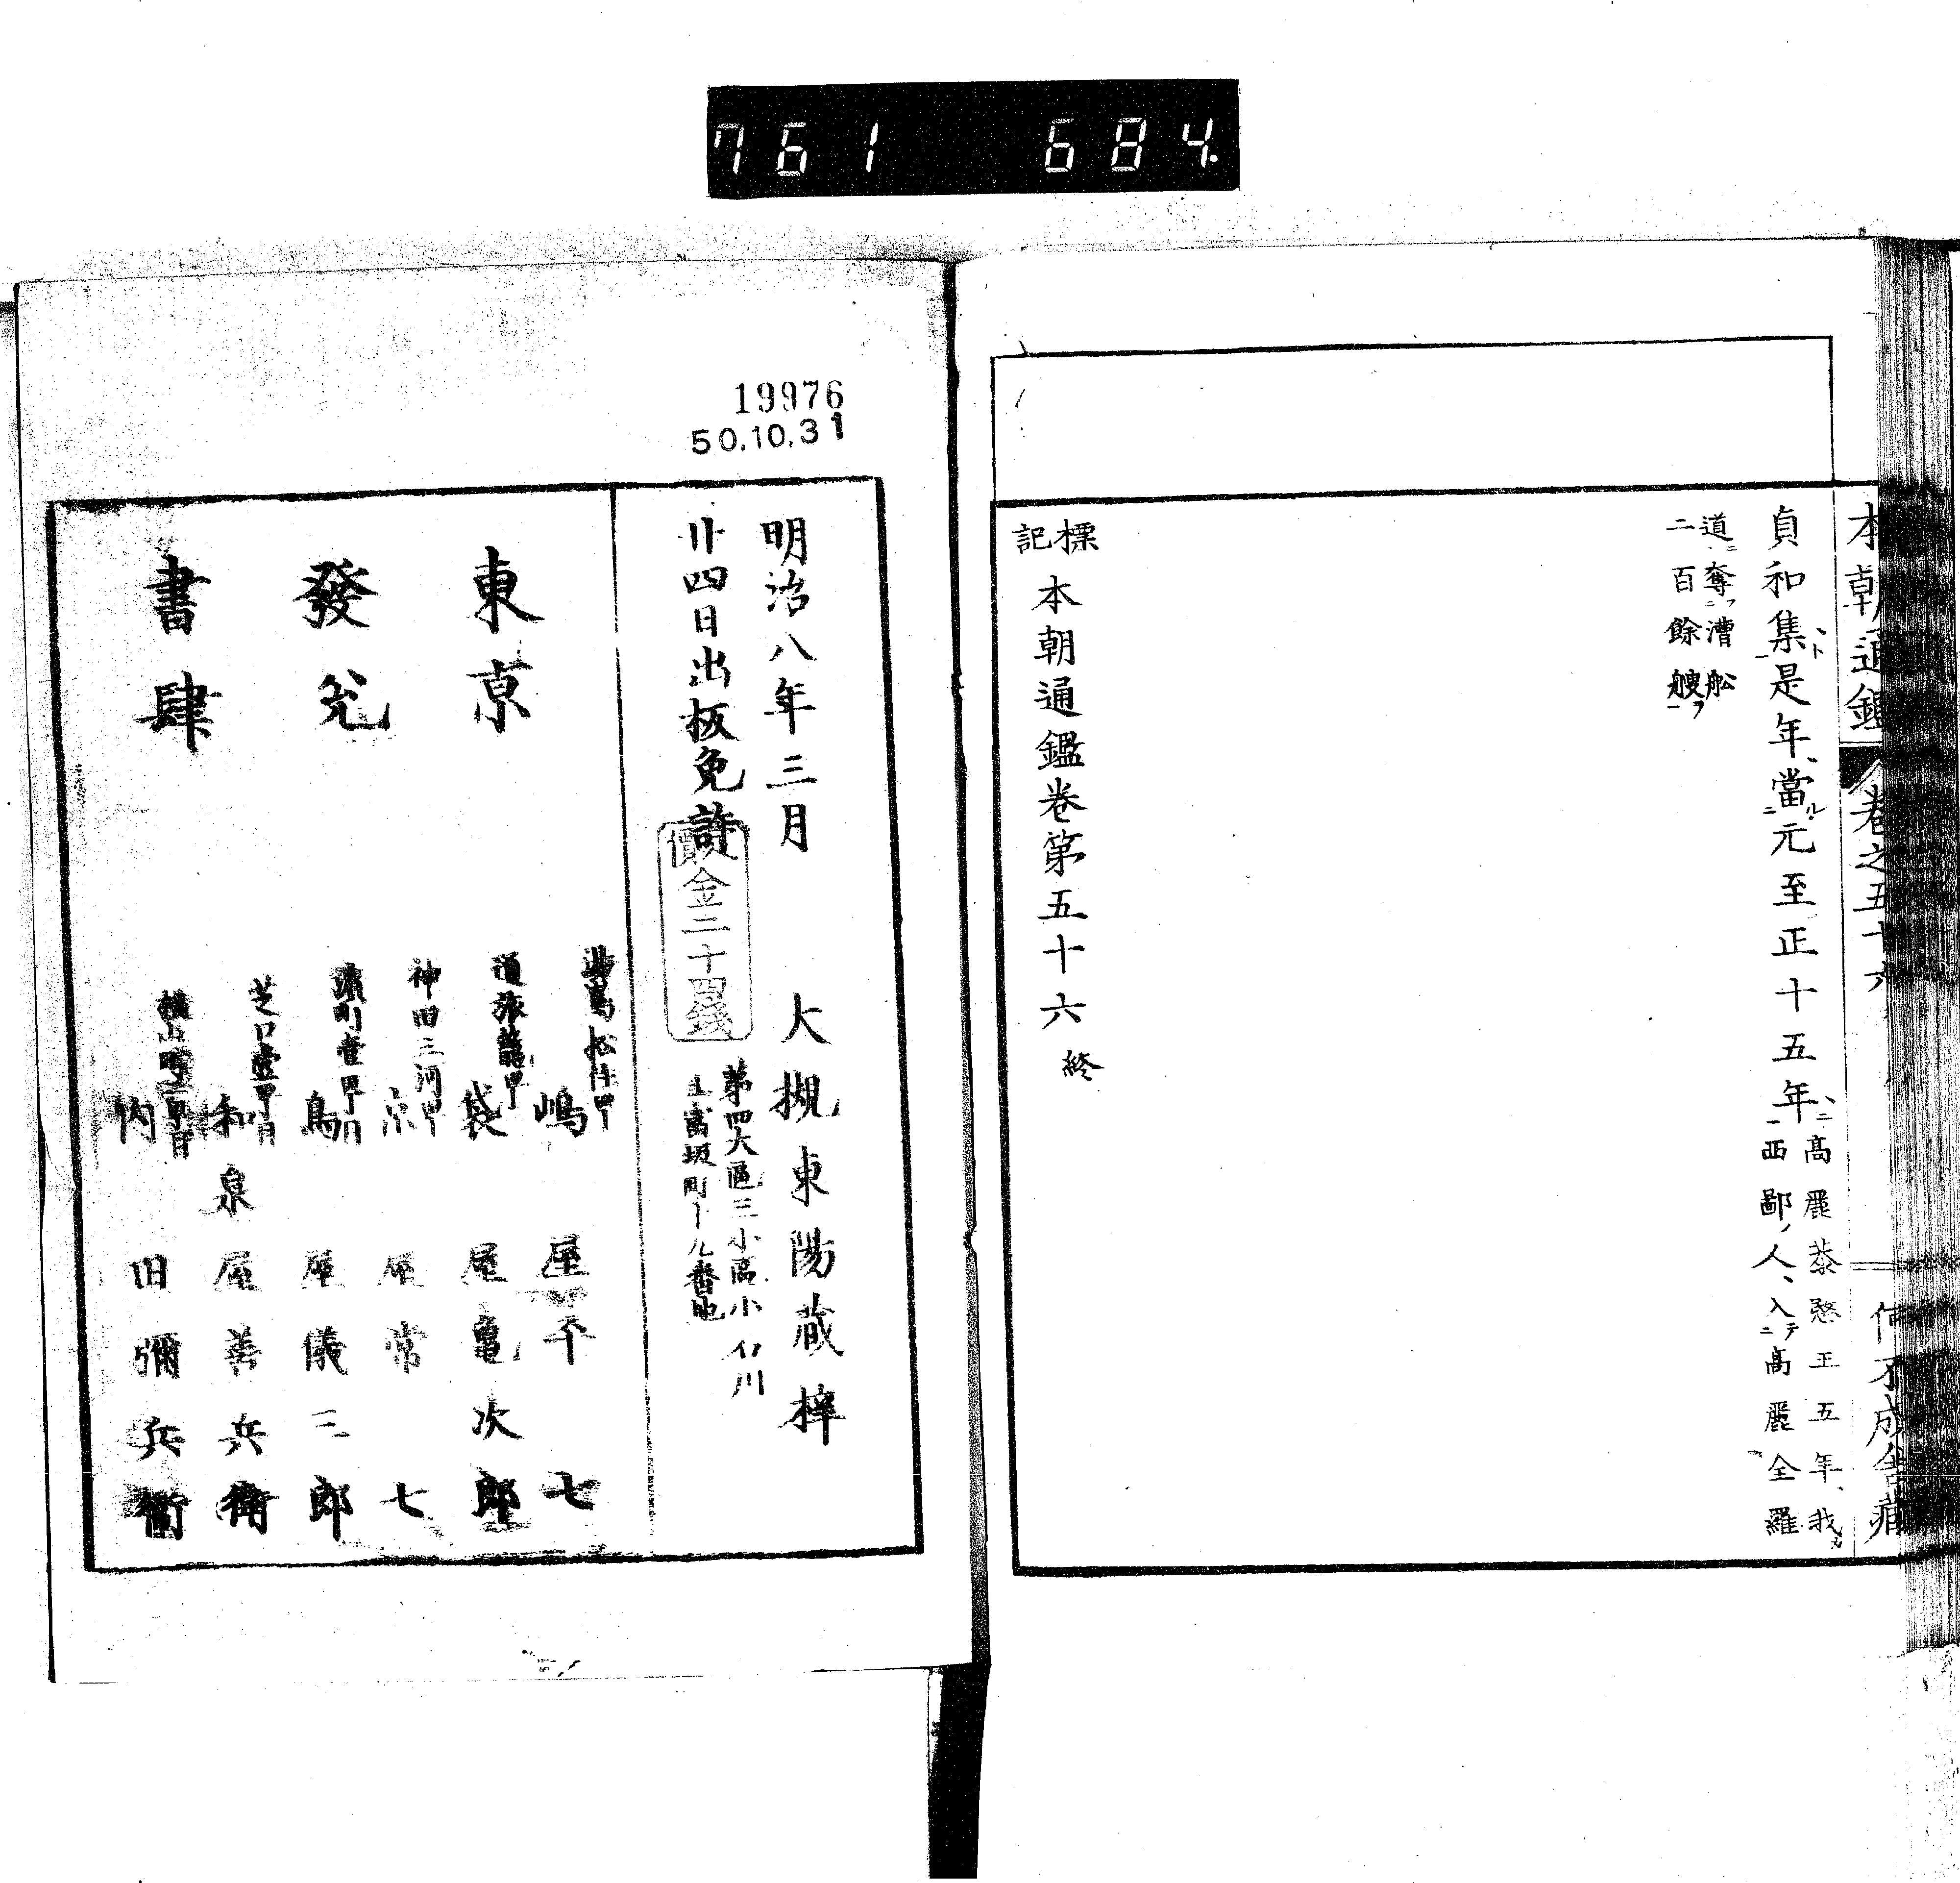 761 684
本朝通鑑 卷之五十六
何不成舍藏
貞和集、ト一是年、當ル二元至正十五年ニ一、高麗恭愍王五年、我カ
西鄙ノ人、入テ二高麗全羅
道ニ一、奪フ二漕舩
二百餘艘ヲ一
標記 本朝通鑑卷第五十六 終
19976
50.10.31
明治八年三月
廿四日出板免許
價金二十四錢
大槻東陽蔵梓
第四大區三小區小石川
上富坂町十九番地
東京
發兌
書肆
湯島松住町
嶋屋平七
通旅籠町
袋屋亀次郎
神田三河町
京屋常七
鳥屋儀三郎
芝口壹丁目
和泉屋善兵衛
横山町三丁目
内田彌兵衛